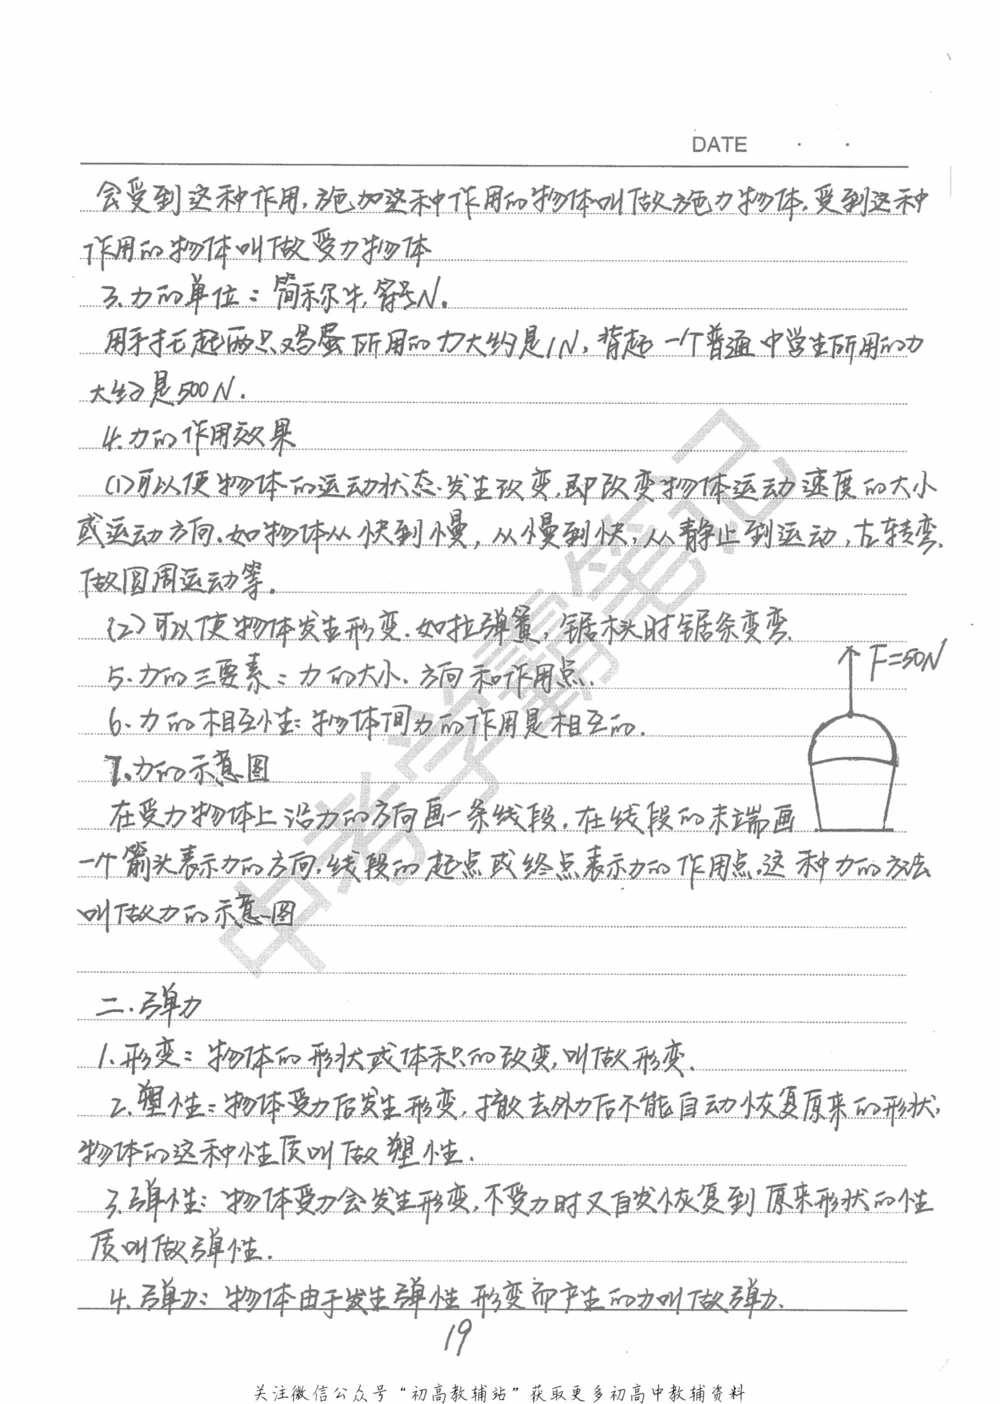 DATE . .
会受到这种作用,施加这种作用的物体叫做施力物体,受到这种
作用的物体叫做受力物体
3.力的单位:简称牛,符号N.
用手托起两只鸡蛋所用的力大约是1N,背起一个普通中学生所用的力
大约是500N.
4.力的作用效果
(1)可以使物体的运动状态发生改变,即改变物体运动速度的大小
或运动方向.如物体从快到慢,从慢到快,从静止到运动,左转弯,
做圆周运动等.
(2)可以使物体发生形变.如拉弹簧,锯木头时锯条变弯.
5.力的三要素:力的大小、方向和作用点.
F=50N
6.力的相互性:物体间力的作用是相互的.
7.力的示意图
在受力物体上沿力的方向画一条线段,在线段的末端画
一个箭头表示力的方向,线段的起点或终点表示力的作用点,这种力的方法
叫做力的示意图
二.弹力
1.形变:物体的形状或体积的改变,叫做形变.
2.塑性:物体受力后发生形变,撤去外力后不能自动恢复原来的形状,
物体的这种性质叫做塑性.
3.弹性:物体受力会发生形变,不受力时又自发恢复到原来形状的性
质叫做弹性.
4.弹力:物体由于发生弹性形变而产生的力叫做弹力.
19
中考学霸笔记
关注微信公众号“初高教辅站”获取更多初高中教辅资料